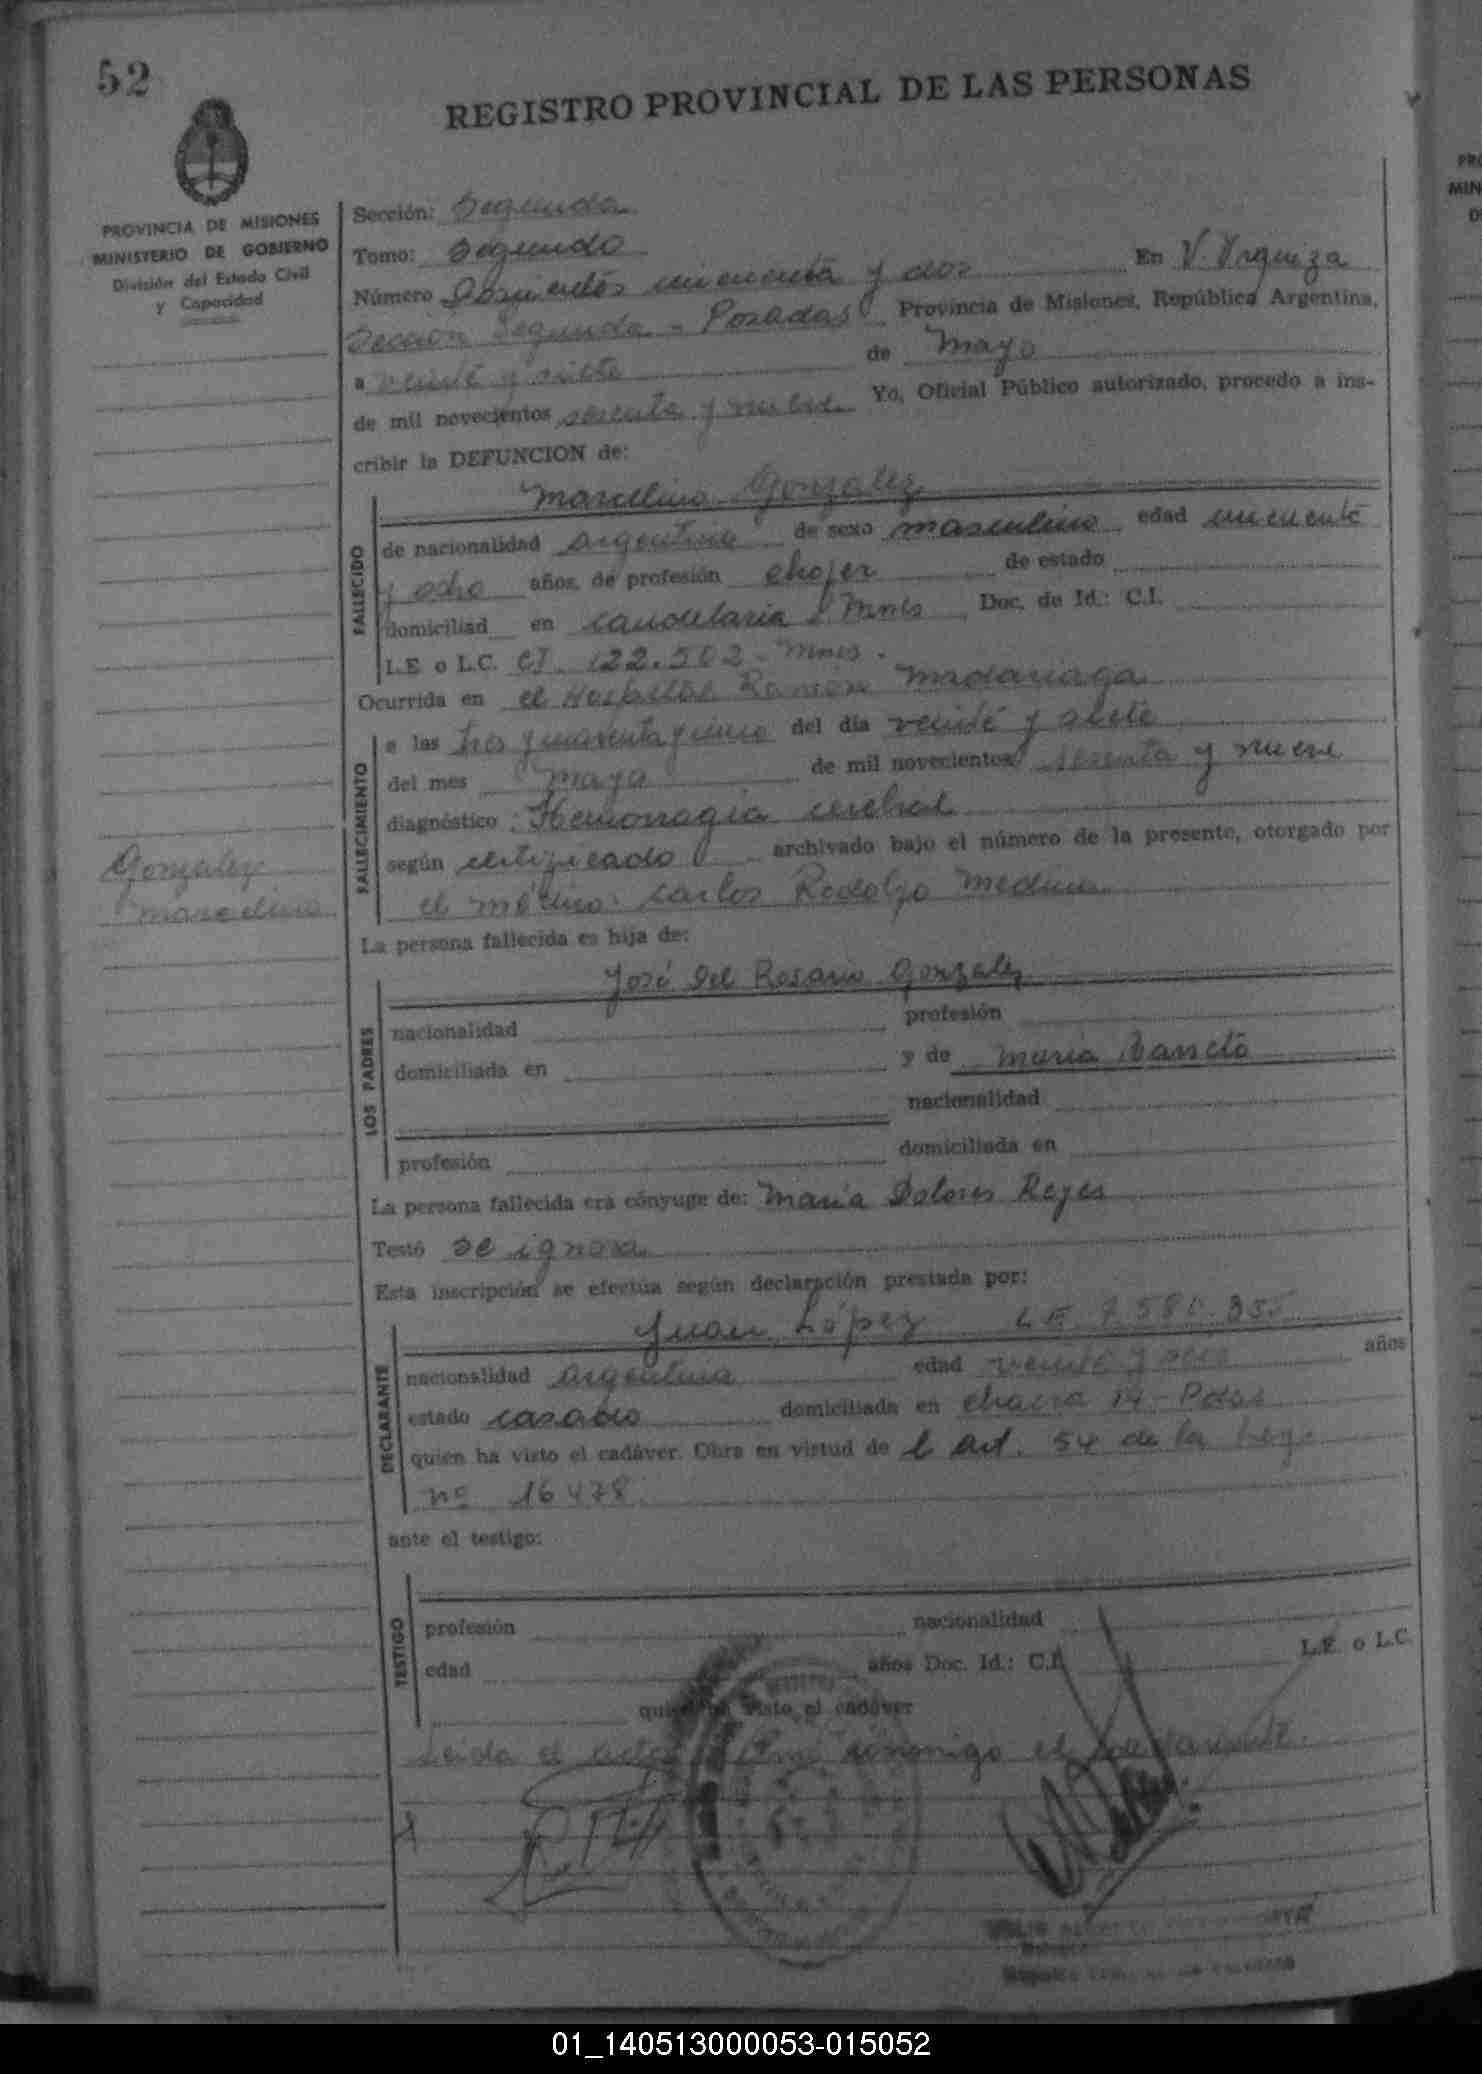 52
REGISTRO PROVINCIAL DE LAS PERSONAS
PROVINCIA DE MISIONES
MINISTERIO DE GOBIERNO
División del Estado Civil
y Capacidad
Sección: Segunda
Tomo: Segundo
Número Doscientos cincuenta y dos En V. Urquiza
Seccion Segunda - Posadas Provincia de Misiones, República Argentina,
a veinte y siete de Mayo
de mil novecientos sesenta y nueve Yo, Oficial Público autorizado, procedo a ins-
cribir la DEFUNCION de:
FALLECIDO
Marcelino Gonzalez
de nacionalidad argentina de sexo masculino edad cincuenta
y ocho años, de profesión chofer de estado
domiciliad en candelaria Mnes Doc. de Id.: C.I.
L.E o L.C. CI 122.502 - Mnes -
Ocurrida en el Hospital Ramon Madariaga
FALLECIMIENTO
a las tres y cuarenta y cinco del día veinte y siete
del mes mayo de mil novecientos sesenta y nueve
diagnóstico: Hemorragia cerebral
según certificado archivado bajo el número de la presente, otorgado por
el médico: Carlos Rodolfo Medina
Gonzalez
Marcelino
La persona fallecida es hija de:
LOS PADRES
José Del Rosario Gonzalez
nacionalidad profesión
domiciliada en y de Maria
nacionalidad
profesión domiciliada en
La persona fallecida era cónyuge de: Maria Dolores Reyes
Testó se ignora
Esta inscripción se efectúa según declaración prestada por:
DECLARANTE
Juan López L.E.
nacionalidad argentina edad veinte y años
estado casado domiciliada en chacra 14 - Pdas
quien ha visto el cadáver. Obra en virtud de l art. 54 de la Ley
nº 16478
ante el testigo:
TESTIGO
profesión nacionalidad
edad años Doc. Id.: C.I. L.E. o L.C.
visto el cadáver
Leida el acta conmigo el declarante.
01_140513000053-015052